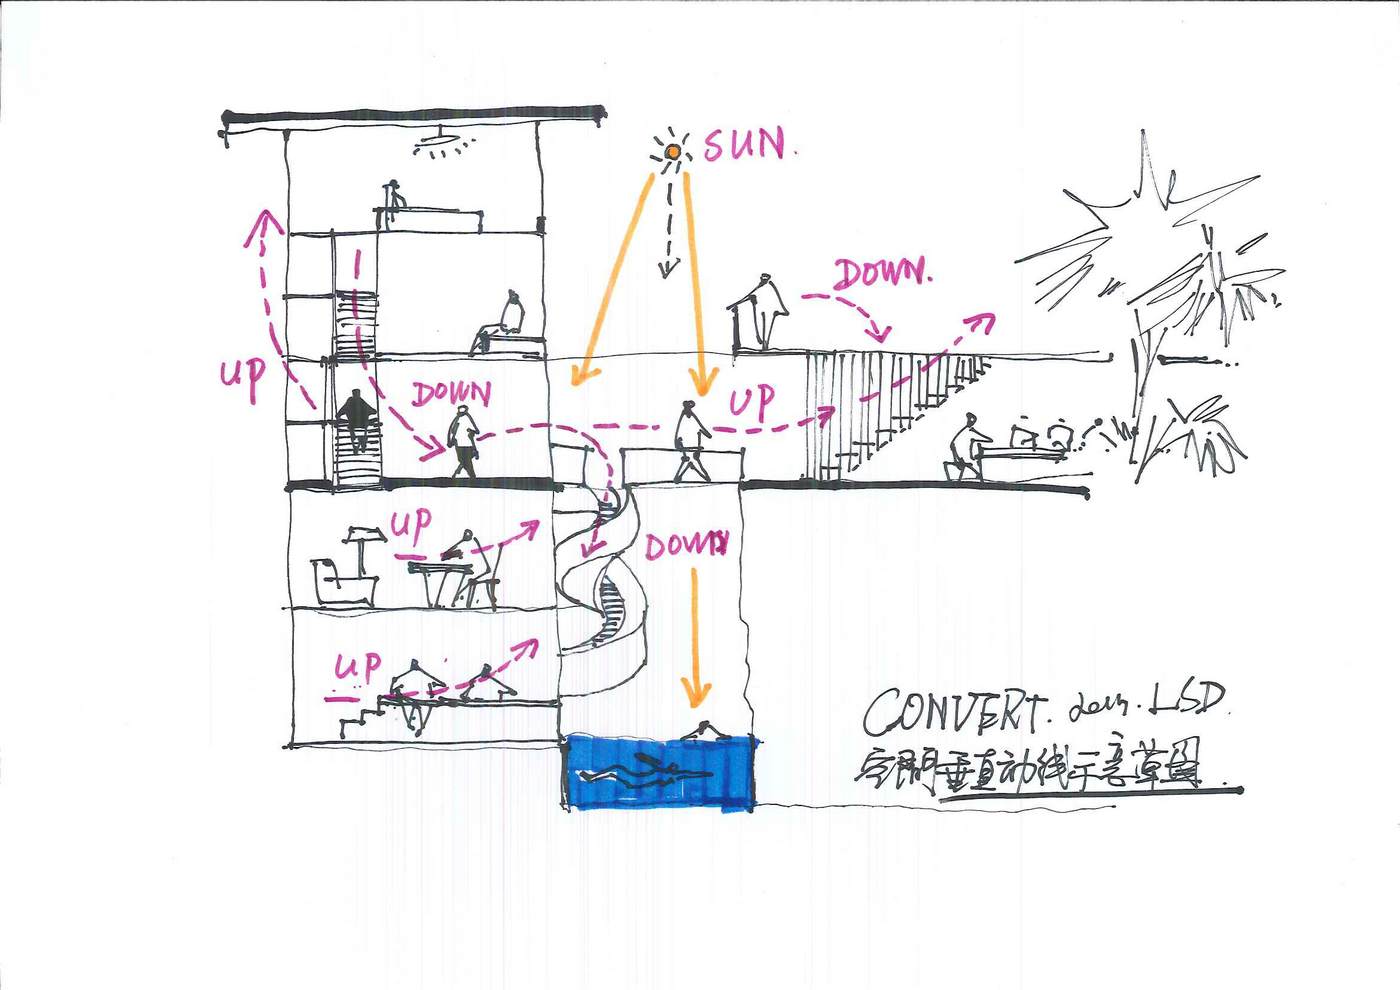 SUN.
DOWN.
UP
DOWN
UP
UP
DOWN
UP
CONVERT. LSD.
空間垂直动线示意草图